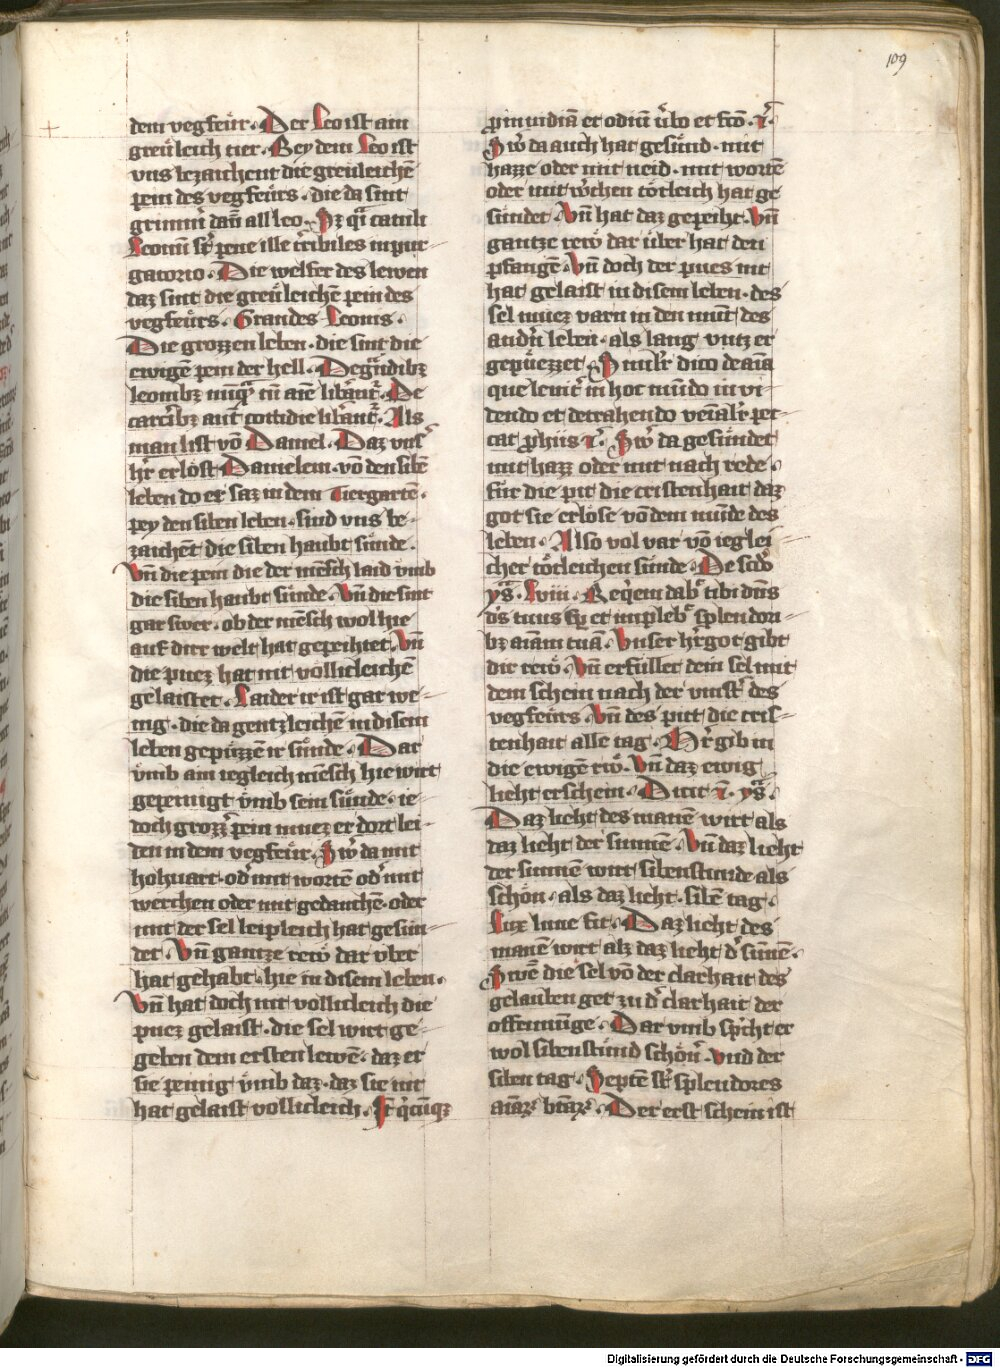 109
dem vegfeür. Der Leo ist ain
greüleich tier. Bey dem Leo ist
vns bezaichent die greuleichē
pein des vegfeürs. die da sint
grimmʼ dañ all leo.
Leonū sūt pene ille tʼribiles in pur
gatorio. Die welfer des lewen
daz sint die greüleichē pein des
vegfeürs. Grandes Leonis.
Die grozzen leben. die sint die
ewigē pein der hell.
De
carcʼibz aut cottidie Als
man list vō Daniel. Daz vnsʼ
hʼr erlöst Danielem. von den sibē
leben do er saz in dem Tiergartē.
pey den siben leben. sind vns be
zaichēt die siben haubt sünde.
Vn̄ die pein die der mēsch laid vmb
die siben haubt sünde. Vn̄ die sint
gar swer. ob der mēsch wol hie
auf dirr welt hat gepeihtet. Vn̄
die puez hat nit vollicleichē
gelaistet. Laider ir ist gar we
nig. die da gentzleichē in disem
leben gepüzzēt ir sünde. Dar
vmb ain iegleich mēsch hie wirt
gepeinigt vmb sein sünde. ie
doch grozzʼ pein muez er dort lei
den in dem vegfeür. Swʼ da mit
hohuart. odʼ mit wortē odʼ mit
werchen oder mit gedanchē. oder
mit der sel leipleich hat gesün
det. Vn̄ gantze rew dar vber
hat gehabt. hie in disem leben.
Vn̄ hat doch nit vollicleich die
puez gelaist. die sel wirt ge
geben dem ersten lewē. daz er
sie peinig vmb daz. daz sie nit
hat gelaist vollicleich.
et odiū et
Swʼ da auch hat gesünd. mit
hazze oder mit neid. mit wortē
oder mit wʼchen tötleich hat ge
sündet. Vn̄ hat daz gepeiht. Vn̄
gantze rew dar über hat den
pfangē. Vn̄ doch der pues nit
hat gelaist in disem leben. des
sel muez varn in den munt des
andʼn leben. als lang vntz er
gepüezzet. Similʼr dico de aīa
que leuitʼ in hoc mūdo inui
dendo et detrahendo veniālʼr pec
cat Swʼ da gesündet
mit hazz oder mit nach rede.
für die pit die cristenhait daz
got sie erlöse vō dem munde des
leben. Also vol var vō ieglei
cher tötleichen sünde. De scdo
ysʼ. Lviii. Reqʼem dabʼ tibi dn̄s
dʼs tuus et implebʼ splendori
bz aīam tuā. Vnser hʼr got gibt
dir rew. Vn̄ erfüllet dein sel mit
dem schein nach der vinstʼ des
vegfeürs. Vn̄ des pitt die cris
tenhait alle tag. Hʼr gib in
die ewigē rw. Vn̄ daz ewig
lieht erschein. Dicit ysʼ.
Daz lieht des manē wirt als
daz lieht der sunnē. Vn̄ daz lieht
der sunnē wirt sibenstunde als
schön. als daz licht. sibē tag.
Lux lune fit. Daz licht des
manē wirt alz daz lieht dʼ sūnē.
Swē die sel vō der clarhait des
gelauben get zu dʼ clarhait der
offennūge. Dar vmb spʼcht er
wol sibenstund schönʼ. vnd der
siben tag. Septē sūt splendores
aīarʼ bt̄arʼ. Der erst schein ist
Digitalisierung gefördert durch die Deutsche Forschungsgemeinschaft - DFG